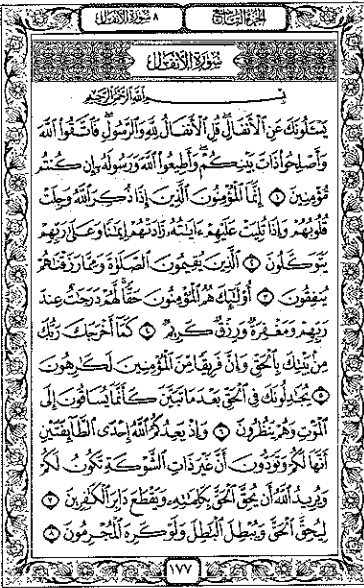 الجزء التاسع
٨ سورة الأنفال
سورة الأنفال
بسم الله الرحمن الرحيم
يَسْـَٔلُونَكَ عَنِ ٱلْأَنفَالِ قُلِ ٱلْأَنفَالُ لِلَّهِ وَٱلرَّسُولِ فَٱتَّقُوا۟ ٱللَّهَ
وَأَصْلِحُوا۟ ذَاتَ بَيْنِكُمْ وَأَطِيعُوا۟ ٱللَّهَ وَرَسُولَهُۥٓ إِن كُنتُم
مُّؤْمِنِينَ ١ إِنَّمَا ٱلْمُؤْمِنُونَ ٱلَّذِينَ إِذَا ذُكِرَ ٱللَّهُ وَجِلَتْ
قُلُوبُهُمْ وَإِذَا تُلِيَتْ عَلَيْهِمْ ءَايَٰتُهُۥ زَادَتْهُمْ إِيمَٰنًا وَعَلَىٰ رَبِّهِمْ
يَتَوَكَّلُونَ ٢ ٱلَّذِينَ يُقِيمُونَ ٱلصَّلَوٰةَ وَمِمَّا رَزَقْنَٰهُمْ
يُنفِقُونَ ٣ أُو۟لَٰٓئِكَ هُمُ ٱلْمُؤْمِنُونَ حَقًّا لَّهُمْ دَرَجَٰتٌ عِندَ
رَبِّهِمْ وَمَغْفِرَةٌ وَرِزْقٌ كَرِيمٌ ٤ كَمَآ أَخْرَجَكَ رَبُّكَ
مِنۢ بَيْتِكَ بِٱلْحَقِّ وَإِنَّ فَرِيقًا مِّنَ ٱلْمُؤْمِنِينَ لَكَٰرِهُونَ
٥ يُجَٰدِلُونَكَ فِى ٱلْحَقِّ بَعْدَ مَا تَبَيَّنَ كَأَنَّمَا يُسَاقُونَ إِلَى
ٱلْمَوْتِ وَهُمْ يَنظُرُونَ ٦ وَإِذْ يَعِدُكُمُ ٱللَّهُ إِحْدَى ٱلطَّآئِفَتَيْنِ
أَنَّهَا لَكُمْ وَتَوَدُّونَ أَنَّ غَيْرَ ذَاتِ ٱلشَّوْكَةِ تَكُونُ لَكُمْ
وَيُرِيدُ ٱللَّهُ أَن يُحِقَّ ٱلْحَقَّ بِكَلِمَٰتِهِۦ وَيَقْطَعَ دَابِرَ ٱلْكَٰفِرِينَ ٧
لِيُحِقَّ ٱلْحَقَّ وَيُبْطِلَ ٱلْبَٰطِلَ وَلَوْ كَرِهَ ٱلْمُجْرِمُونَ ٨
١٧٧